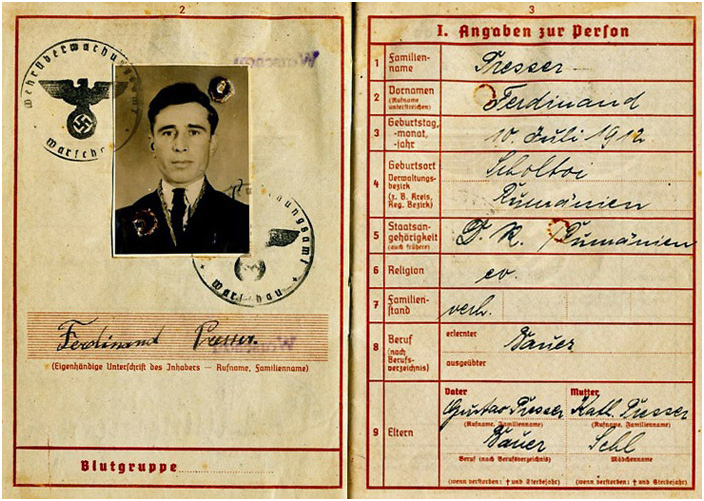 2
Wehrüberwachungsamt
Warschau
Warschau
Ferdinand Presser.
(Eigenhändige Unterschrift des Inhabers — Rufname, Familienname)
Blutgruppe
3
I. Angaben zur Person
1 Familien-
name
Presser
2 Vornamen
(Rufname
unterstreichen)
Ferdinand
3 Geburtstag,
-monat,
-jahr
10. Juli 1912
4 Geburtsort
Verwaltungs-
bezirk
(z. B. Kreis,
Reg. Bezirk)
Scholtoi
Rumänien
5 Staatsan-
gehörigkeit
(auch frühere)
D. R. Rumänien
6 Religion
ev.
7 Familien-
stand
verh.
8 Beruf
(nach
Berufs-
verzeichnis)
erlernter
Bauer
ausgeübter
9 Eltern
Vater
Gustav Presser
(Rufname, Familienname)
Bauer
Beruf (nach Berufsverzeichnis)
(wenn verstorben: † und Sterbejahr)
Mutter
Kath. Presser
(Rufname, Familienname)
Sehl
Mädchenname
(wenn verstorben: † und Sterbejahr)